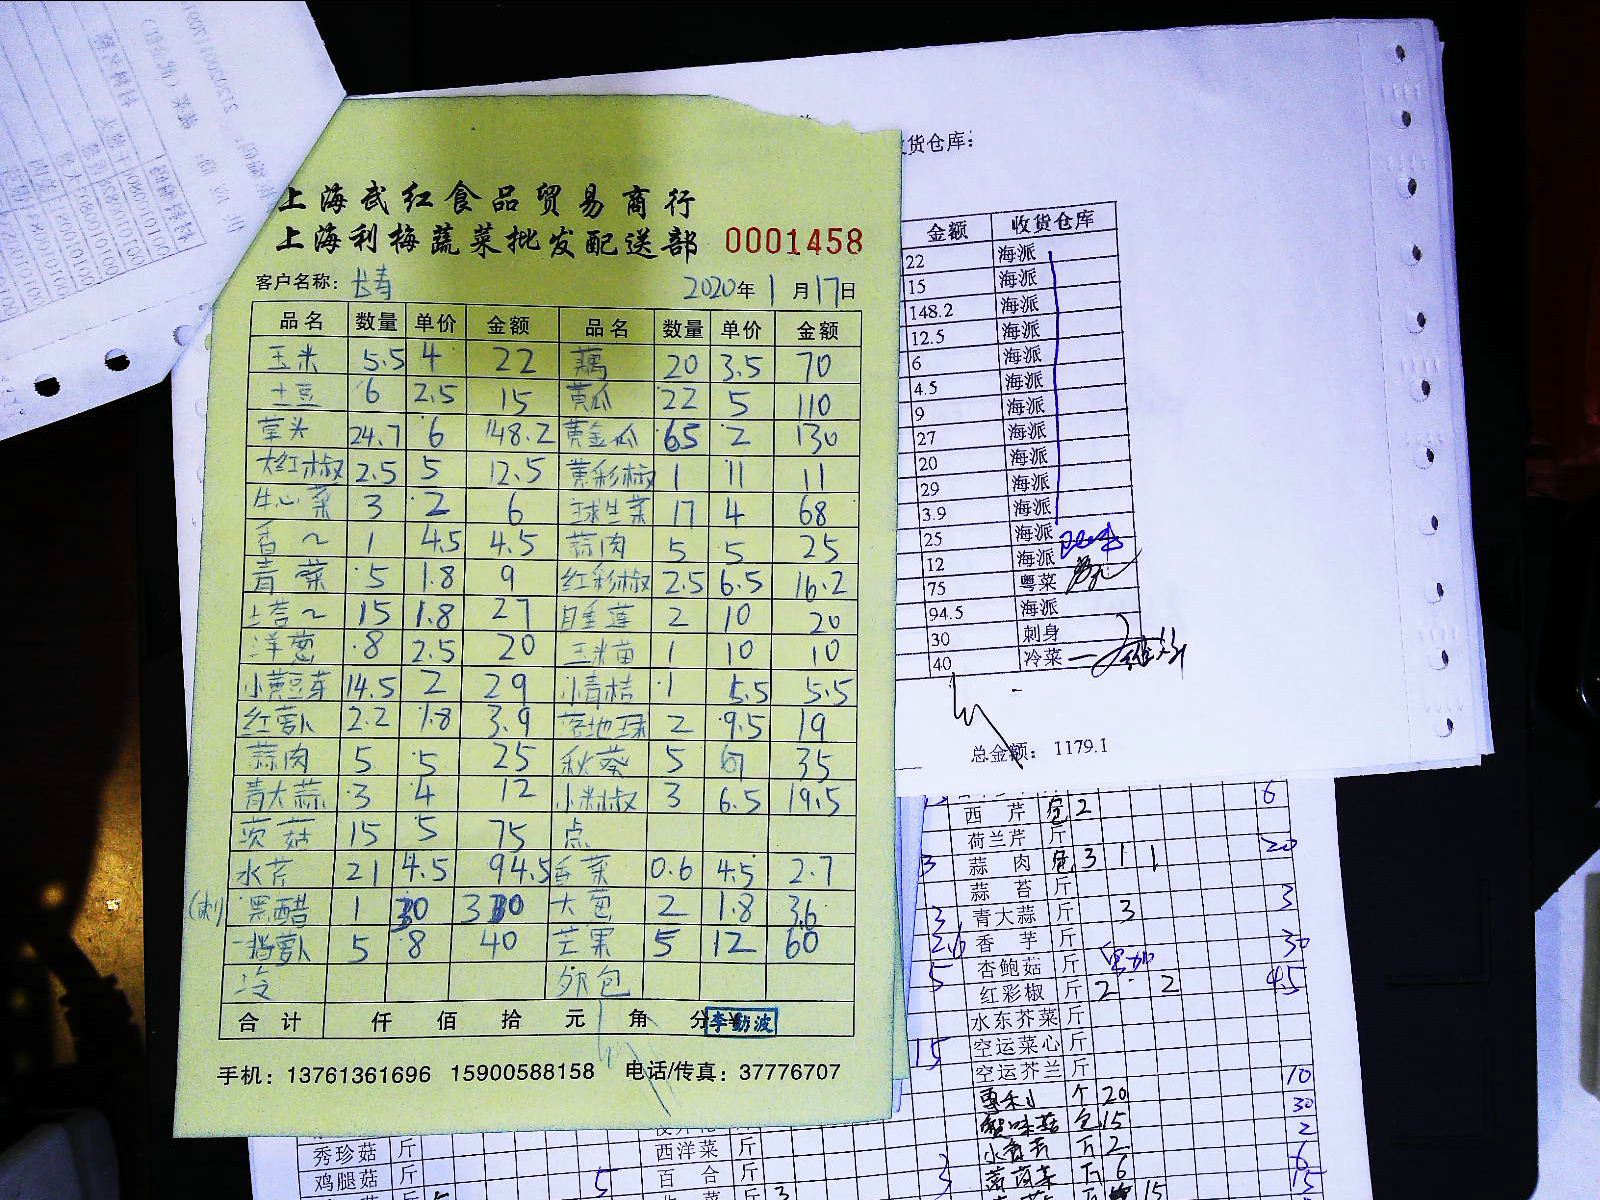 上海武红食品贸易商行
上海利梅蔬菜批发配送部 0001458
客户名称: 长青 2020年1月17日
品名 数量 单价 金额 品名 数量 单价 金额
玉米 5.5 4 22 藕 20 3.5 70
土豆 6 2.5 15 黄瓜 22 5 110
草头 24.7 6 148.2 黄金瓜 65 2 130
大红椒 2.5 5 12.5 黄彩椒 1 11 11
牛心菜 3 2 6 球生菜 17 4 68
香~ 1 4.5 4.5 蒜肉 5 5 25
青菜 5 1.8 9 红彩椒 2.5 6.5 16.2
15 1.8 27 睡莲 2 10 20
洋葱 8 2.5 20 玉米苗 1 10 10
小黄豆芽 14.5 2 29 小青桔 1 5.5 5.5
红萝卜 2.2 1.8 3.9 2 9.5 19
蒜肉 5 5 25 秋葵 5 35
青大蒜 3 4 12 小米椒 3 6.5 19.5
茨菇 15 5 75 点
水芹 21 4.5 94.5 香菜 0.6 4.5 2.7
(刺) 黑醋 1 30 30 大葱 2 1.8 3.6
萝卜 5 8 40 芒果 5 12 60
冷 包
合计 仟 佰 拾 元 角 分 李勤波
手机: 13761361696 15900588158 电话/传真: 37776707
收货仓库:
金额 收货仓库
22 海派
15 海派
148.2 海派
12.5 海派
6 海派
4.5 海派
9 海派
27 海派
20 海派
29 海派
3.9 海派
25 海派
12 海派
75 粤菜
94.5 海派
30 刺身
40 冷菜
总金额: 1179.1
6
西芹 包 2
荷兰芹 斤
3 蒜肉 包 3 1 1 20
蒜苔 斤
3 青大蒜 斤 3 3
2.6 香芋 斤 30
5 杏鲍菇 斤
红彩椒 斤 2 2 4.5
水东芥菜 斤
15 空运菜心 斤
空运芥兰 斤 10
个 20 30
蟹味菇 包 15 2
斤 2 6
斤 6 15
秀珍菇 斤 西洋菜 斤
鸡腿菇 斤 5 百合 斤 3